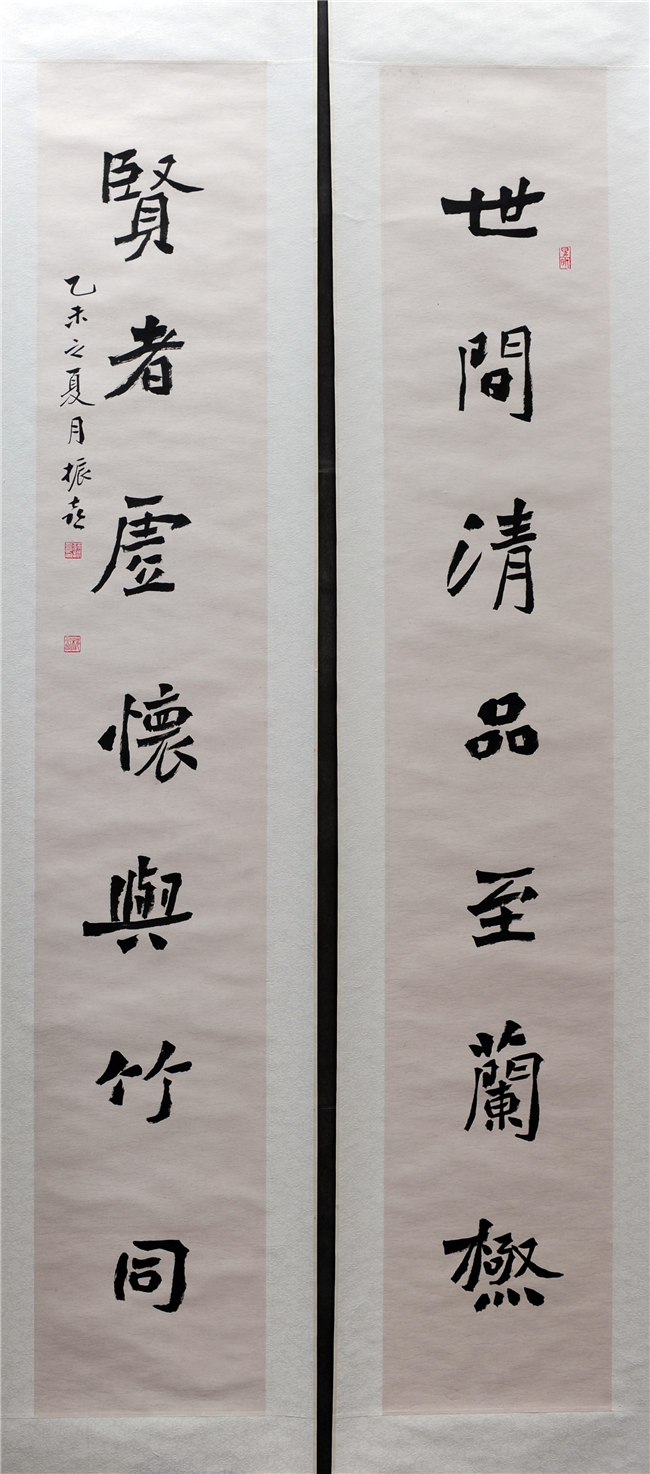 世間清品至蘭極
賢者虛懷與竹同
乙未之夏月振